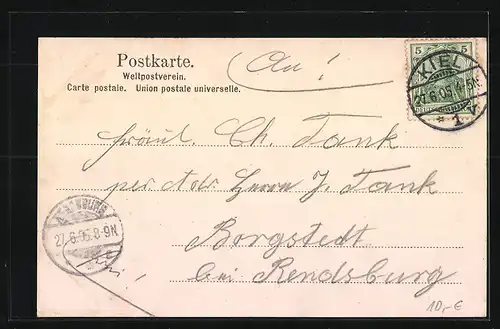 Postkarte.
Weltpostverein.
Carte postale. Union postale universelle.
An!
5 5
KIEL
27.6.05. 4-5N.
* 1. v.
Fräul. Ch. Tank
per Adr. Herrn J. Tank
Borgstedt
bei Rendsburg
27.6.05.8-9N
10,-€